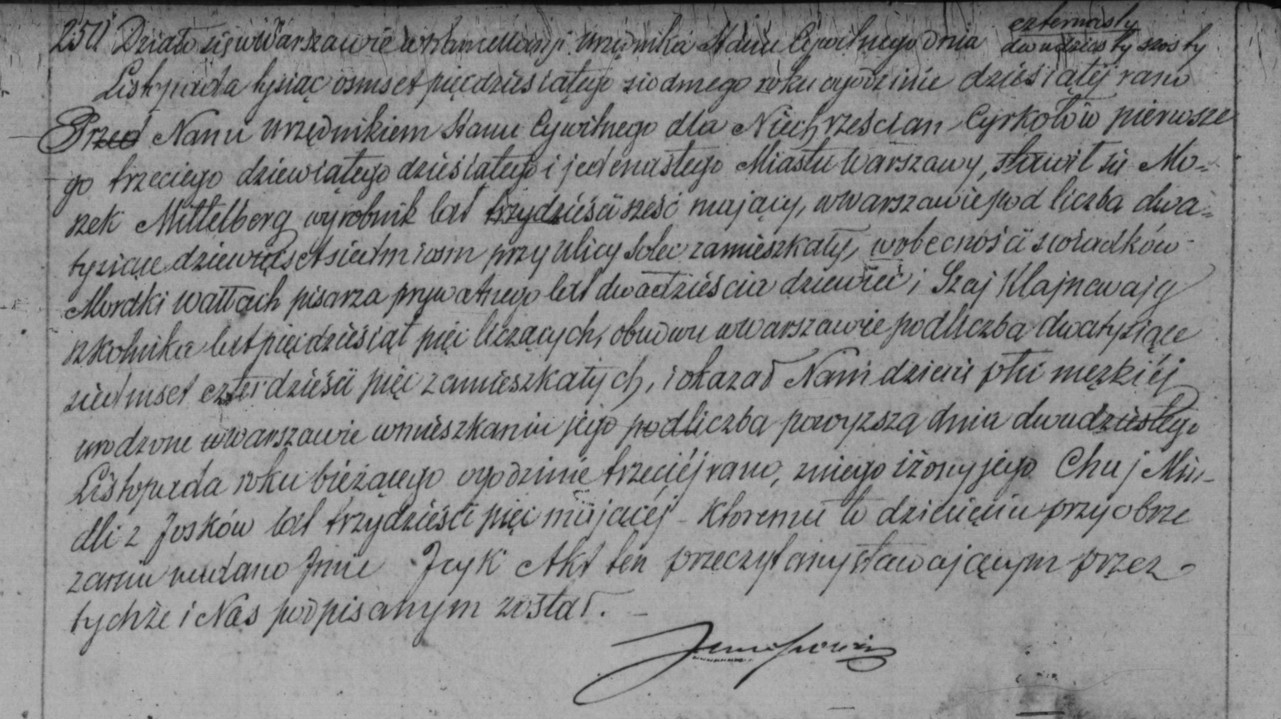 Działo się w Warszawie w Kancellarji Urzędnika Stanu Cywilnego dnia czternasty
dwudziesty szósty
Listopada tysiąc osmset pięćdziesiątego siodmego roku o godzinie dziesiątej rano
Przed Nami Urzędnikiem Stanu Cywilnego dla Niechrześcian Cyrkołów pierwsze
go trzeciego dziewiątego dziesiątego i jedenastego Miasta Warszawy, stawił się Mo-
szek Mittelberg wyrobnik lat trzydzieści sześć mający, w Warszawie pod liczbą dwa-
tysiące dziewięćset siedm przy ulicy Solec zamieszkały, w obecności świadków
Mordki Wallach pisarza prywatnego lat dwadzieścia dziewięć i Szaj Klajnewajg
szkolnika lat pięćdziesiąt pięć liczących, obudwu w Warszawie pod liczbą dwatysiące
siedmset czterdzieści pięć zamieszkałych, i okazał Nam dziecię płci męzkiéj
urodzone w Warszawie w mieszkaniu jego pod liczbą powyższą dnia dwudziestego
Listopada roku bieżącego o godzinie trzeciéj rano, z niego i żony jego Chaj Min-
dli z Josków lat trzydzieści pięć mającéj - Któremu to dziecięciu przy obrze
zaniu nadano Imie Icyk Akt ten przeczytany stawającym przez
tychże i Nas podpisanym został. -